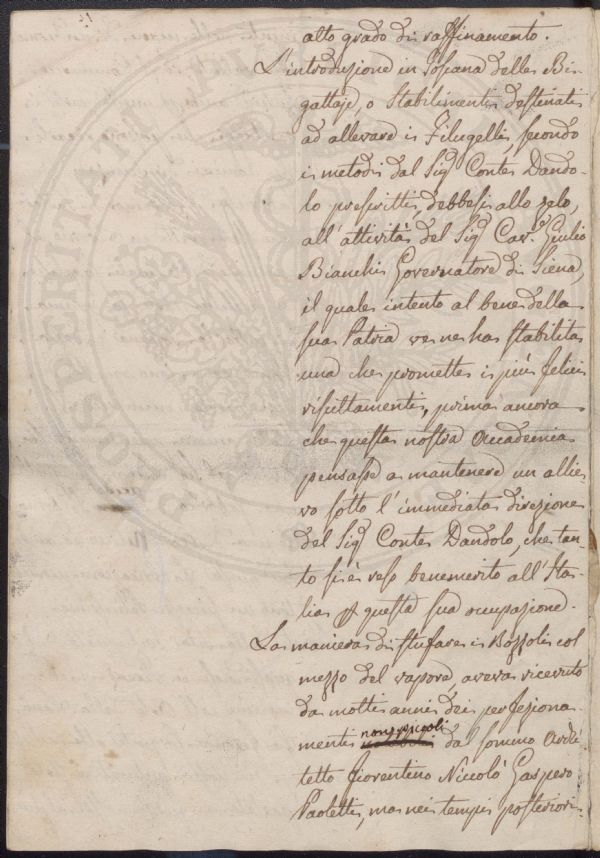 alto grado di raffinamento.
L'introduzione in Toscana delle Bi-
gattaje, o Stabilimenti destinati
ad allevare i Filugelli, secondo
i metodi dal Sig.r Conte Dando-
lo prescritti, debbesi allo zelo,
all'attività del Sig.r Cav.r Giulio
Bianchi Governatore di Siena,
il quale intento al bene della
sua Patria ve ne ha stabilita
una che promette i più felici
risultamenti, prima ancora
che questa nostra Accademia
pensasse a mantenere un allie-
vo sotto l'immediata direzione
del Sig.r Conte Dandolo, che tan-
to si è reso benemerito all'Ita-
lia p questa sua occupazione.
La maniera di stufare i Bozzoli col
mezzo del vapore, aveva ricevuto
da molti anni dei perfeziona-
menti non piccoli dal sommo Archi-
tetto fiorentino Niccolò Gaspero
Paoletti, ma nei tempi posteriori